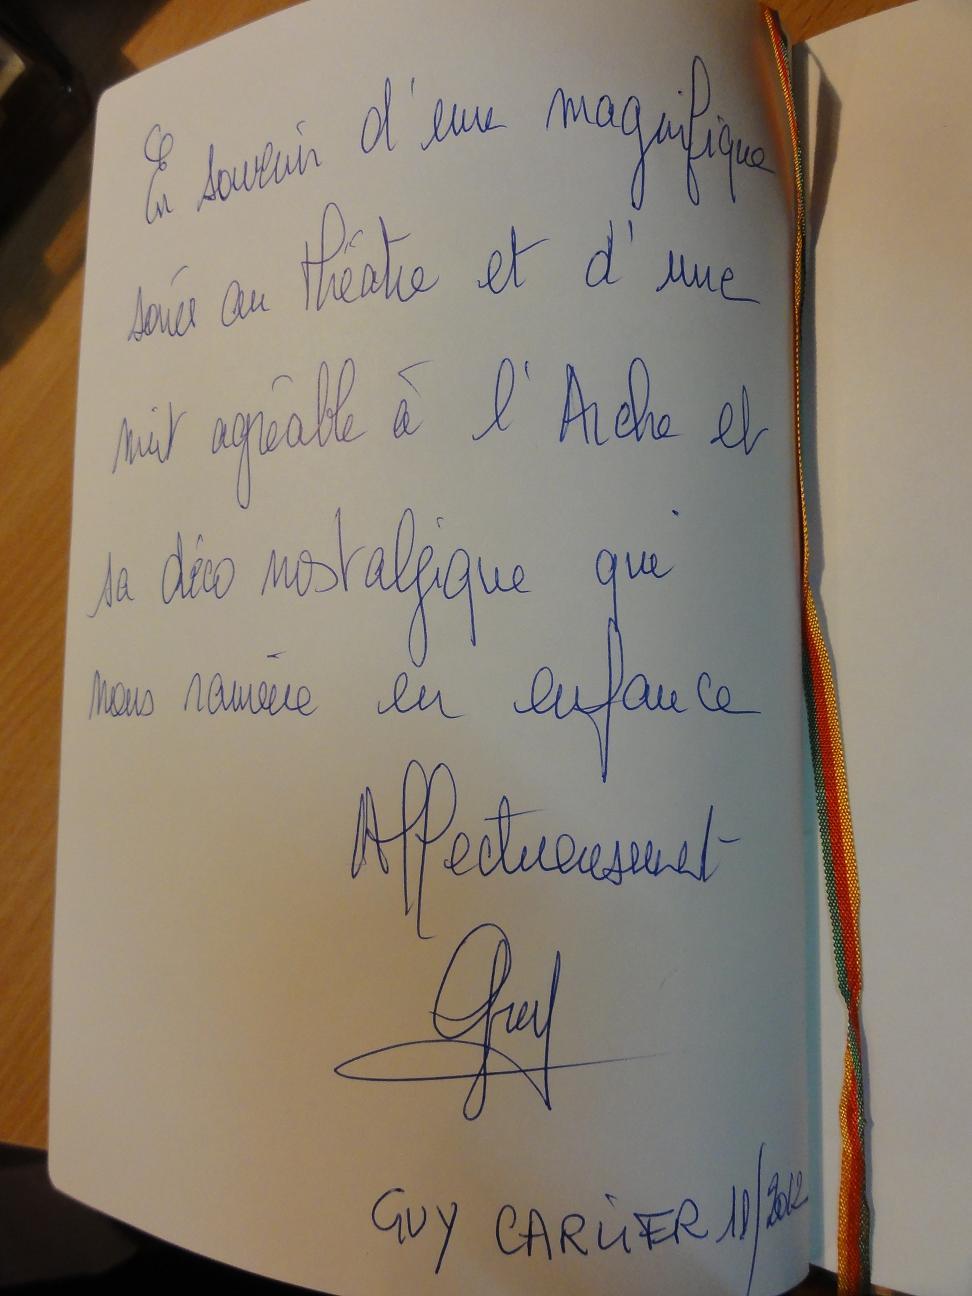 En souvenir d'une magnifique
soirée au théâtre et d'une
nuit agréable à l'Arche et
sa déco nostalgique qui
nous ramène en enfance
Affectueusement
Guy
GUY CARLIER 11/2012